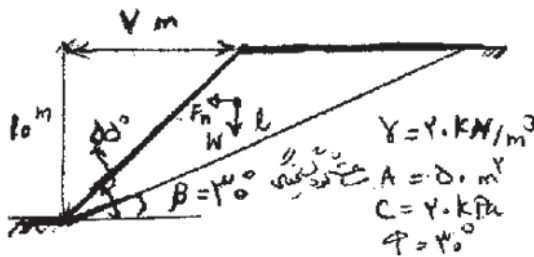 ۷ m
۱۰ m
۵۵°
Fn
W
l
β = ۳۰°
γ = ۲۰ kN/m³
A = ۵۰ m²
C = ۲۰ kPa
φ = ۳۰°